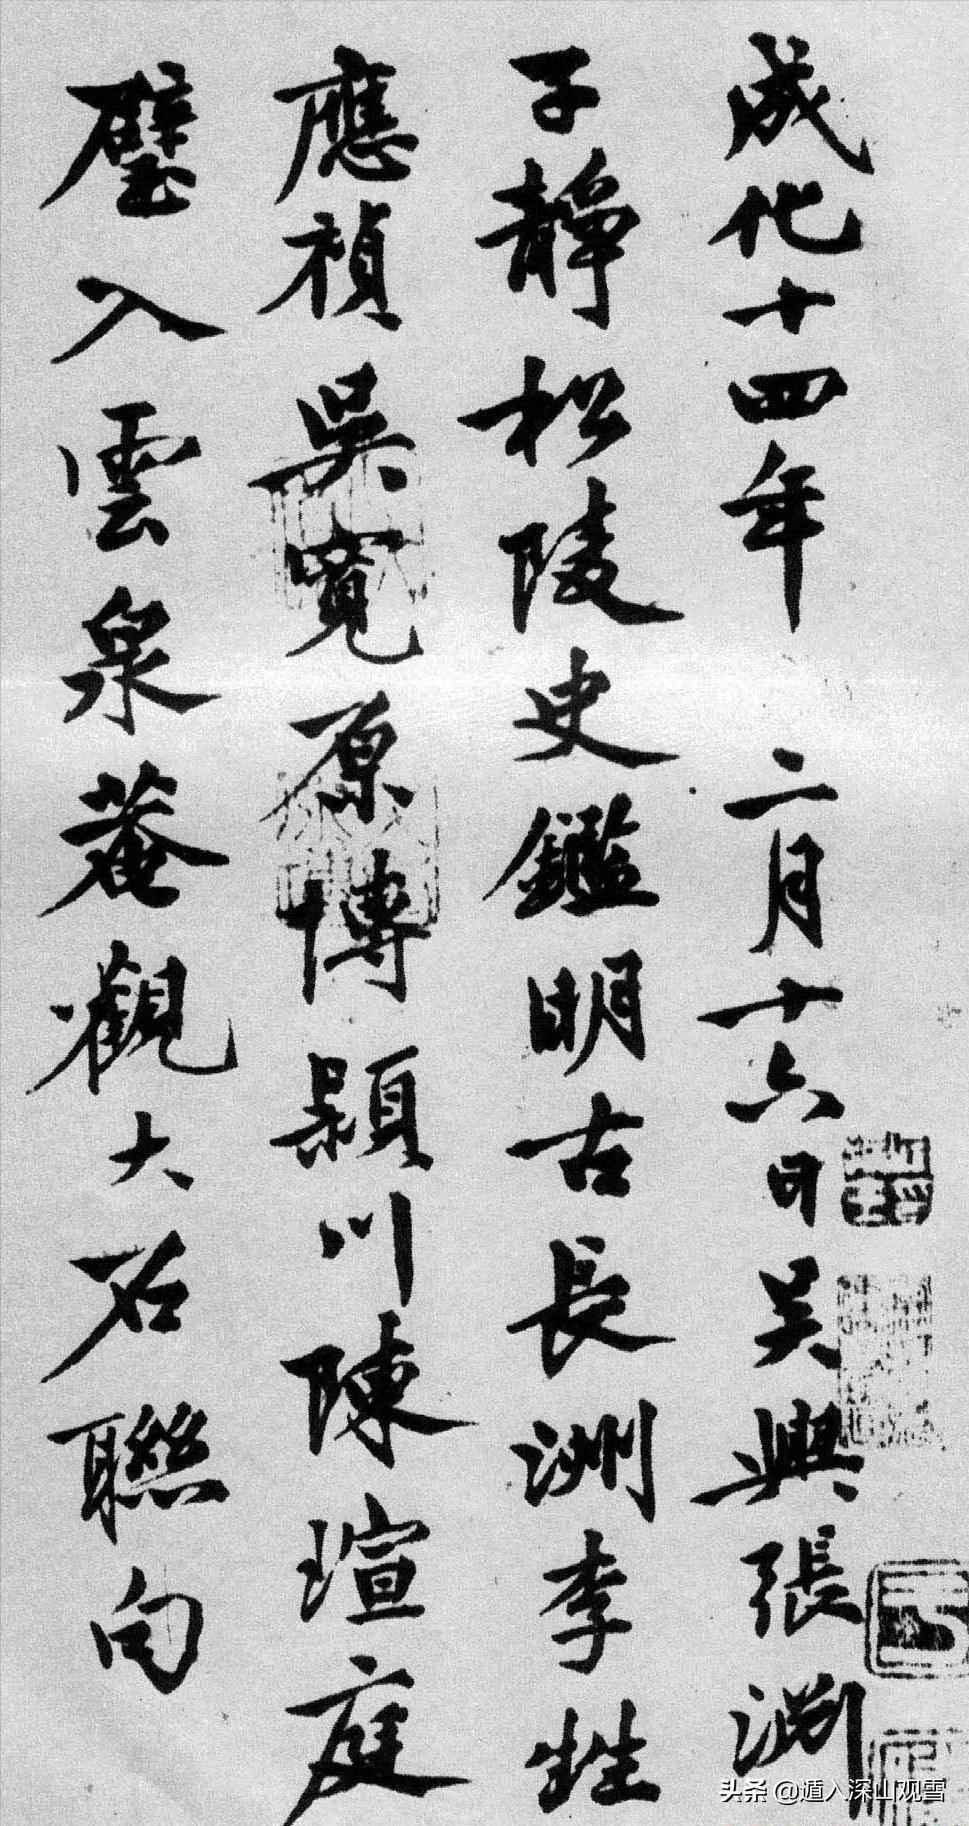 成化十四年 二月十六日吴興張渊
子靜松陵史鑑明古長洲李甡
應禎吳寬原博潁川陳瑄庭
璧入雲泉菴觀大石聯句
头条 @遁入深山观雪